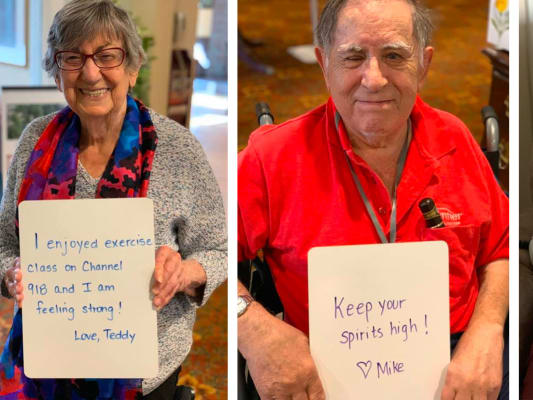 I enjoyed exercise
class on Channel
918 and I am
feeling strong!
Love, Teddy
Keep your
spirits high!
♡ Mike